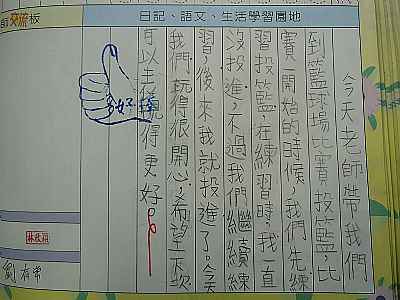 日記、語文、生活學習園地
交流板
今天老師帶我們
到籃球場比賽投籃,比
賽一開始的時候,我們先練
習投籃,在練習時,我一直
沒投進,不過我們繼續練
習,後來我就投進了。今天
我們玩得很開心,希望下次
可以表現得更好。
好棒